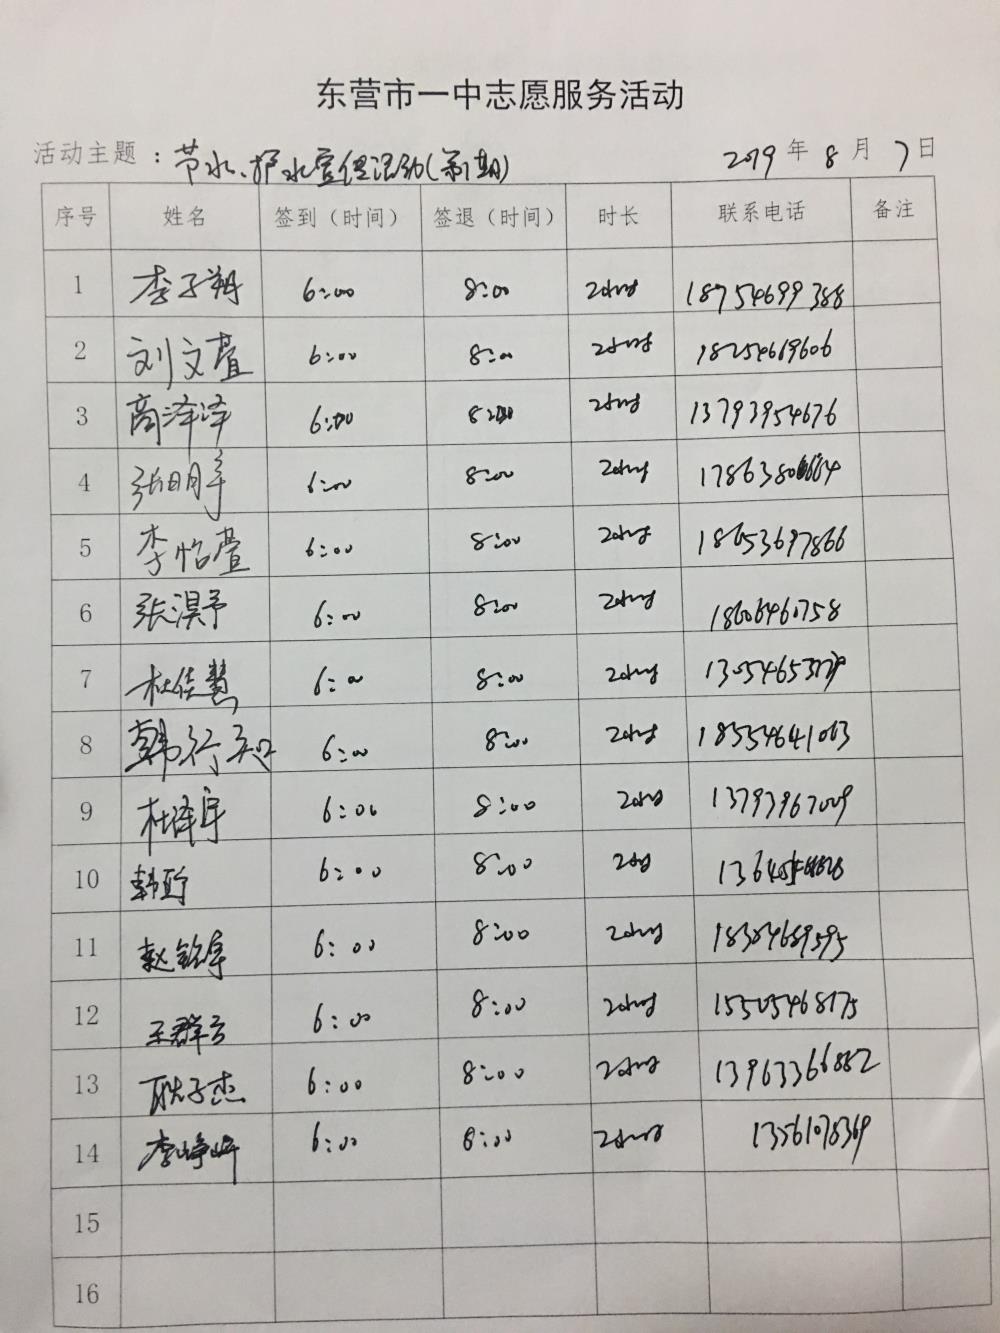 东营市一中志愿服务活动
活动主题：节水、护水宣传活动(第1期) 2019年8月7日
序号 姓名 签到（时间） 签退（时间） 时长 联系电话 备注
1 李子翔 6:00 8:00 18754699388
2 刘文萱 6:00 8:00 18254619606
3 商泽泽 6:00 8:00 13793954676
4 张明年 6:00 8:00
5 李怡萱 6:00 8:00 18653697866
6 张淏予 6:00 8:00 18606460758
7 杜佳慧 6:00 8:00
8 韩行知 6:00 8:00 18554641063
9 杜泽宇 6:00 8:00 13793967009
10 6:00 8:00
11 6:00 8:00
12 6:00 8:00 15505468175
13 耿子杰 6:00 8:00 13963366882
14 李峥嵘 6:00 8:00 13561078369
15
16